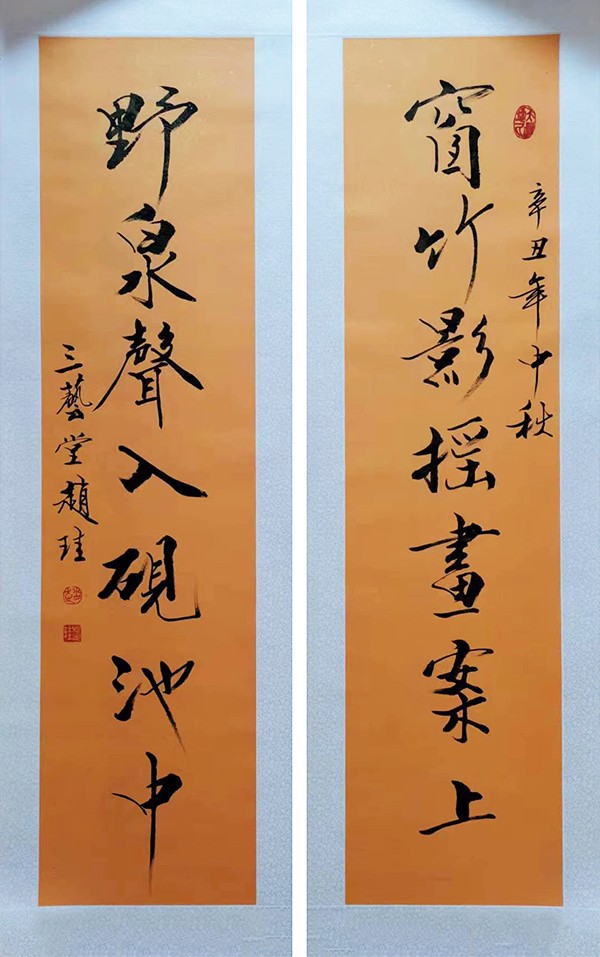 辛丑年中秋
窗竹影摇畫案上
野泉聲入硯池中
三藝堂趙珪